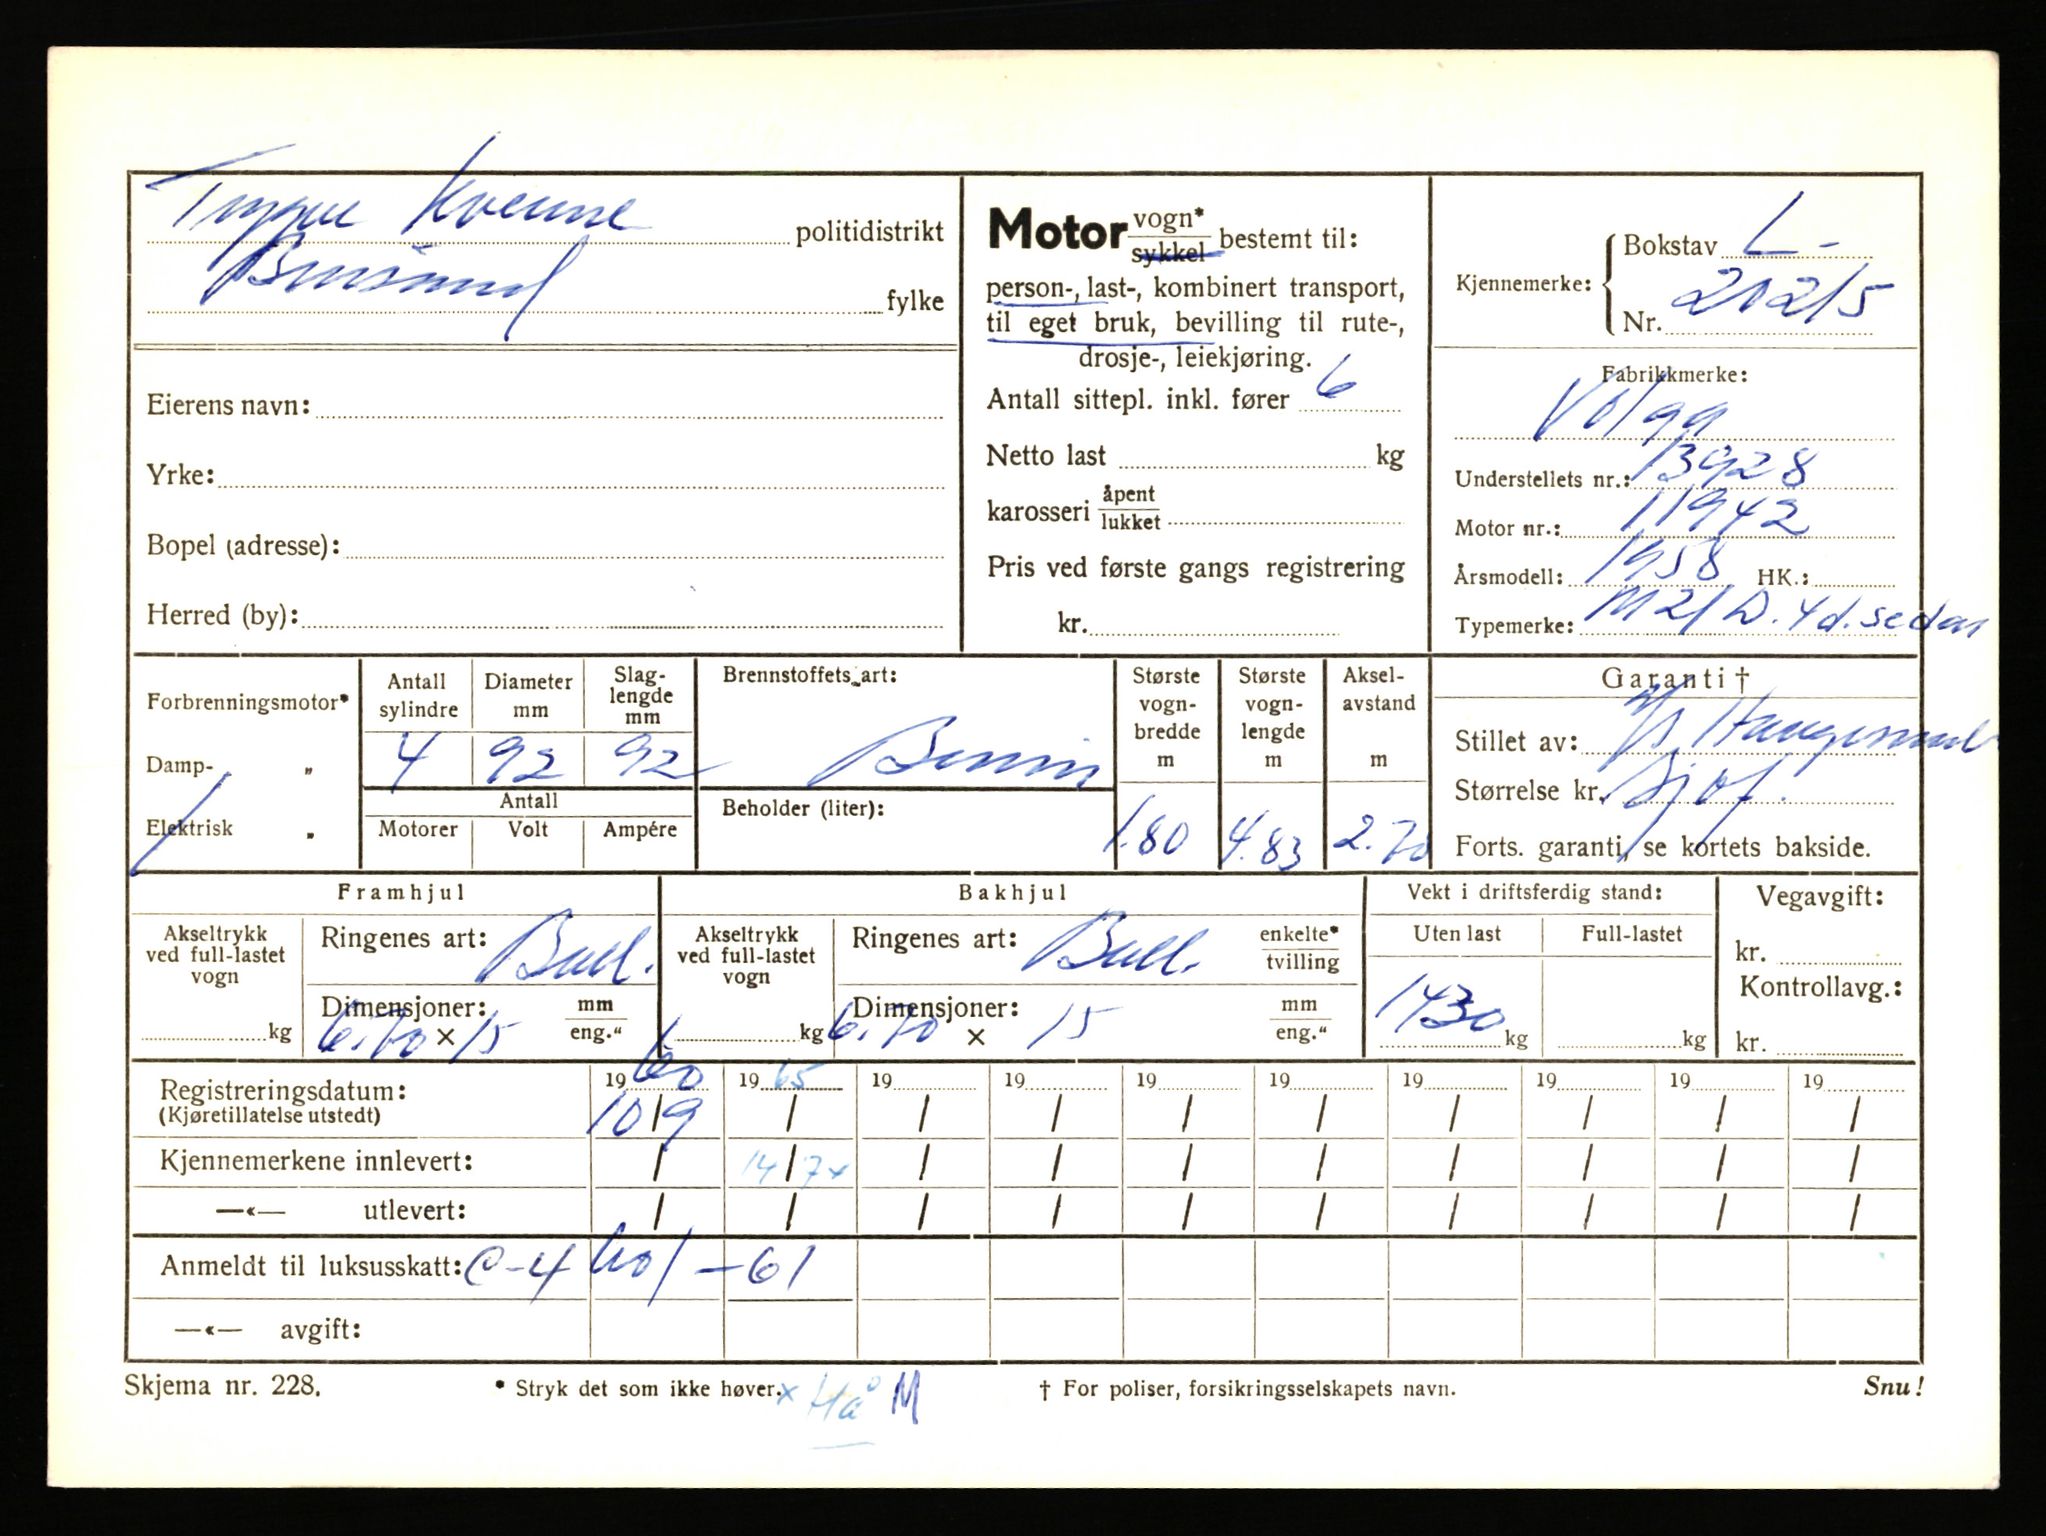 Trygve Kvenne politidistrikt
Brusand fylke
Eierens navn:
Yrke:
Bopel (adresse):
Herred (by):
Motor vogn* / sykkel bestemt til:
person-, last-, kombinert transport,
til eget bruk, bevilling til rute-,
drosje-, leiekjøring.
Antall sittepl. inkl. fører 6
Netto last kg
karosseri åpent / lukket
Pris ved første gangs registrering
kr.
Kjennemerke: Bokstav L-
Nr. 20215
Fabrikkmerke:
Volga
Understellets nr.: 13928
Motor nr.: 11942
Årsmodell: 1958 HK.:
Typemerke: M 21 D. 4d. sedan
Forbrenningsmotor*
Damp- „
Elektrisk „
Antall sylindre 4
Diameter mm 92
Slaglengde mm 92
Antall
Motorer Volt Ampére
Brennstoffets art:
Bensin
Beholder (liter):
Største vognbredde m 1.80
Største vognlengde m 4.83
Akselavstand m 2.70
Garanti †
Stillet av:
Størrelse kr.
Forts. garanti, se kortets bakside.
Framhjul
Akseltrykk ved full-lastet vogn kg
Ringenes art: Ball.
Dimensjoner: mm / eng."
6.70 × 15
Bakhjul
Akseltrykk ved full-lastet vogn kg
Ringenes art: Ball. enkelte* / tvilling
Dimensjoner: mm / eng."
6.70 × 15
Vekt i driftsferdig stand:
Uten last Full-lastet
1430 kg kg
Vegavgift:
kr.
Kontrollavg.:
kr.
Registreringsdatum: 19 60 19 65 19 19 19 19 19 19 19 19
(Kjøretillatelse utstedt) 10/9 / / / / / / / / /
Kjennemerkene innlevert: / 14/7x / / / / / / / /
—«— utlevert: / / / / / / / / / /
Anmeldt til luksusskatt: C-4 60/-61
—«— avgift:
Skjema nr. 228. * Stryk det som ikke høver. x Hå M † For poliser, forsikringsselskapets navn. Snu!